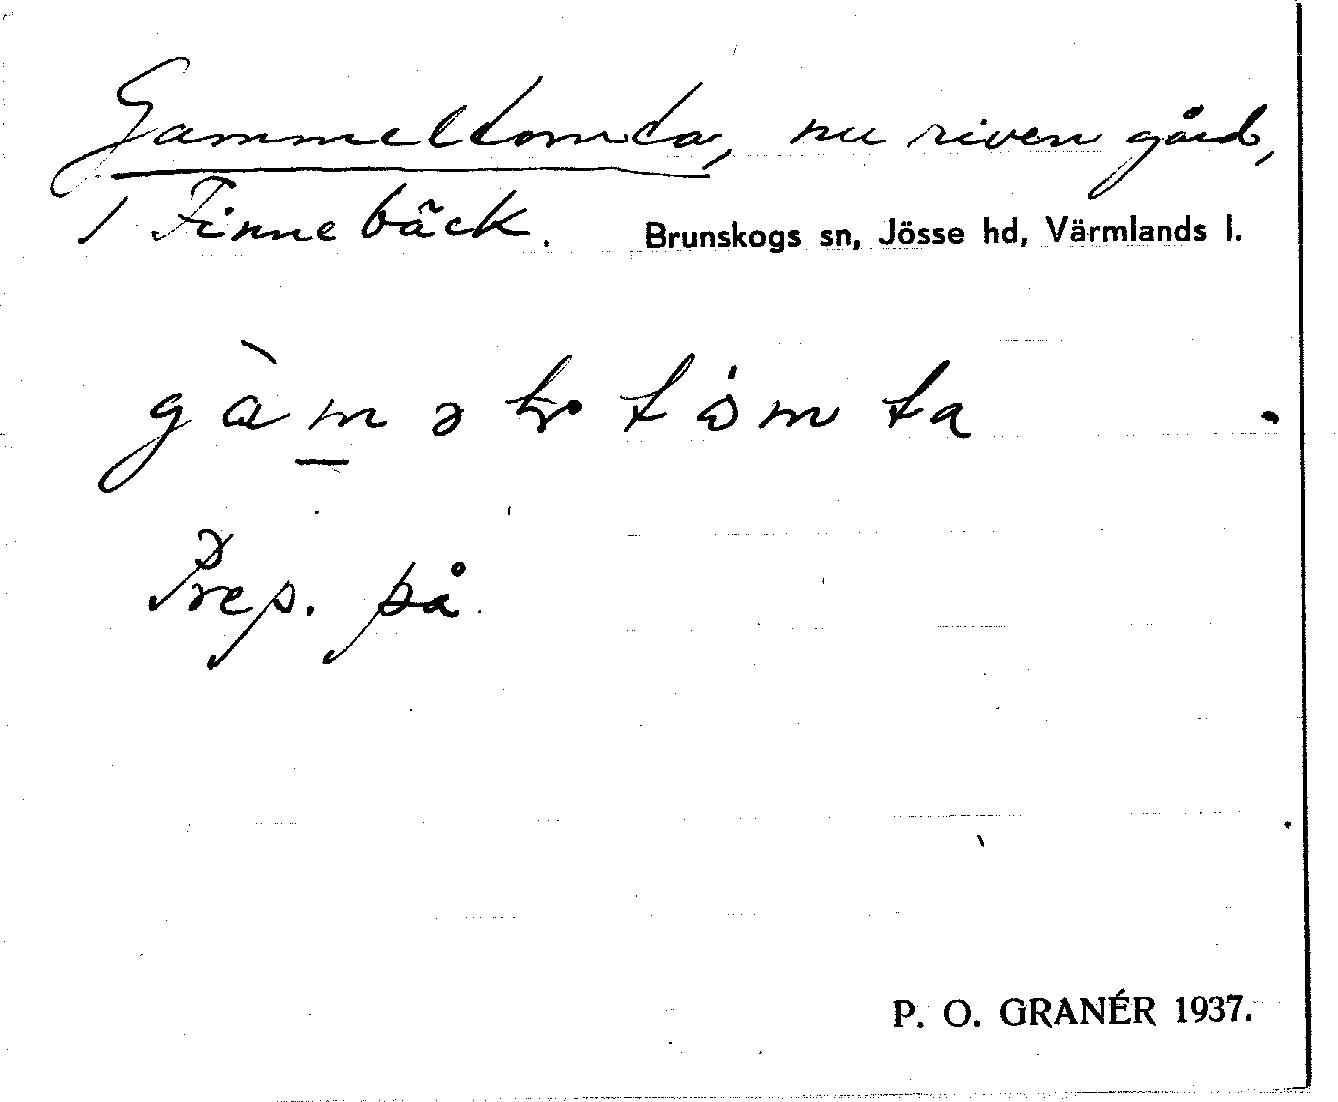 Gammeltomta, nu riven gård,
1 Finnebäck. Brunskogs sn, Jösse hd, Värmlands l.
Prep. på
P. O. GRANÉR 1937.